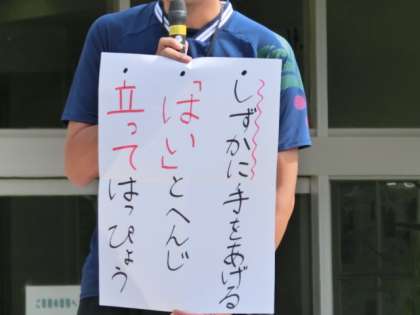 ・しずかに手をあげる
・「はい」とへんじ
・立ってはっぴょう